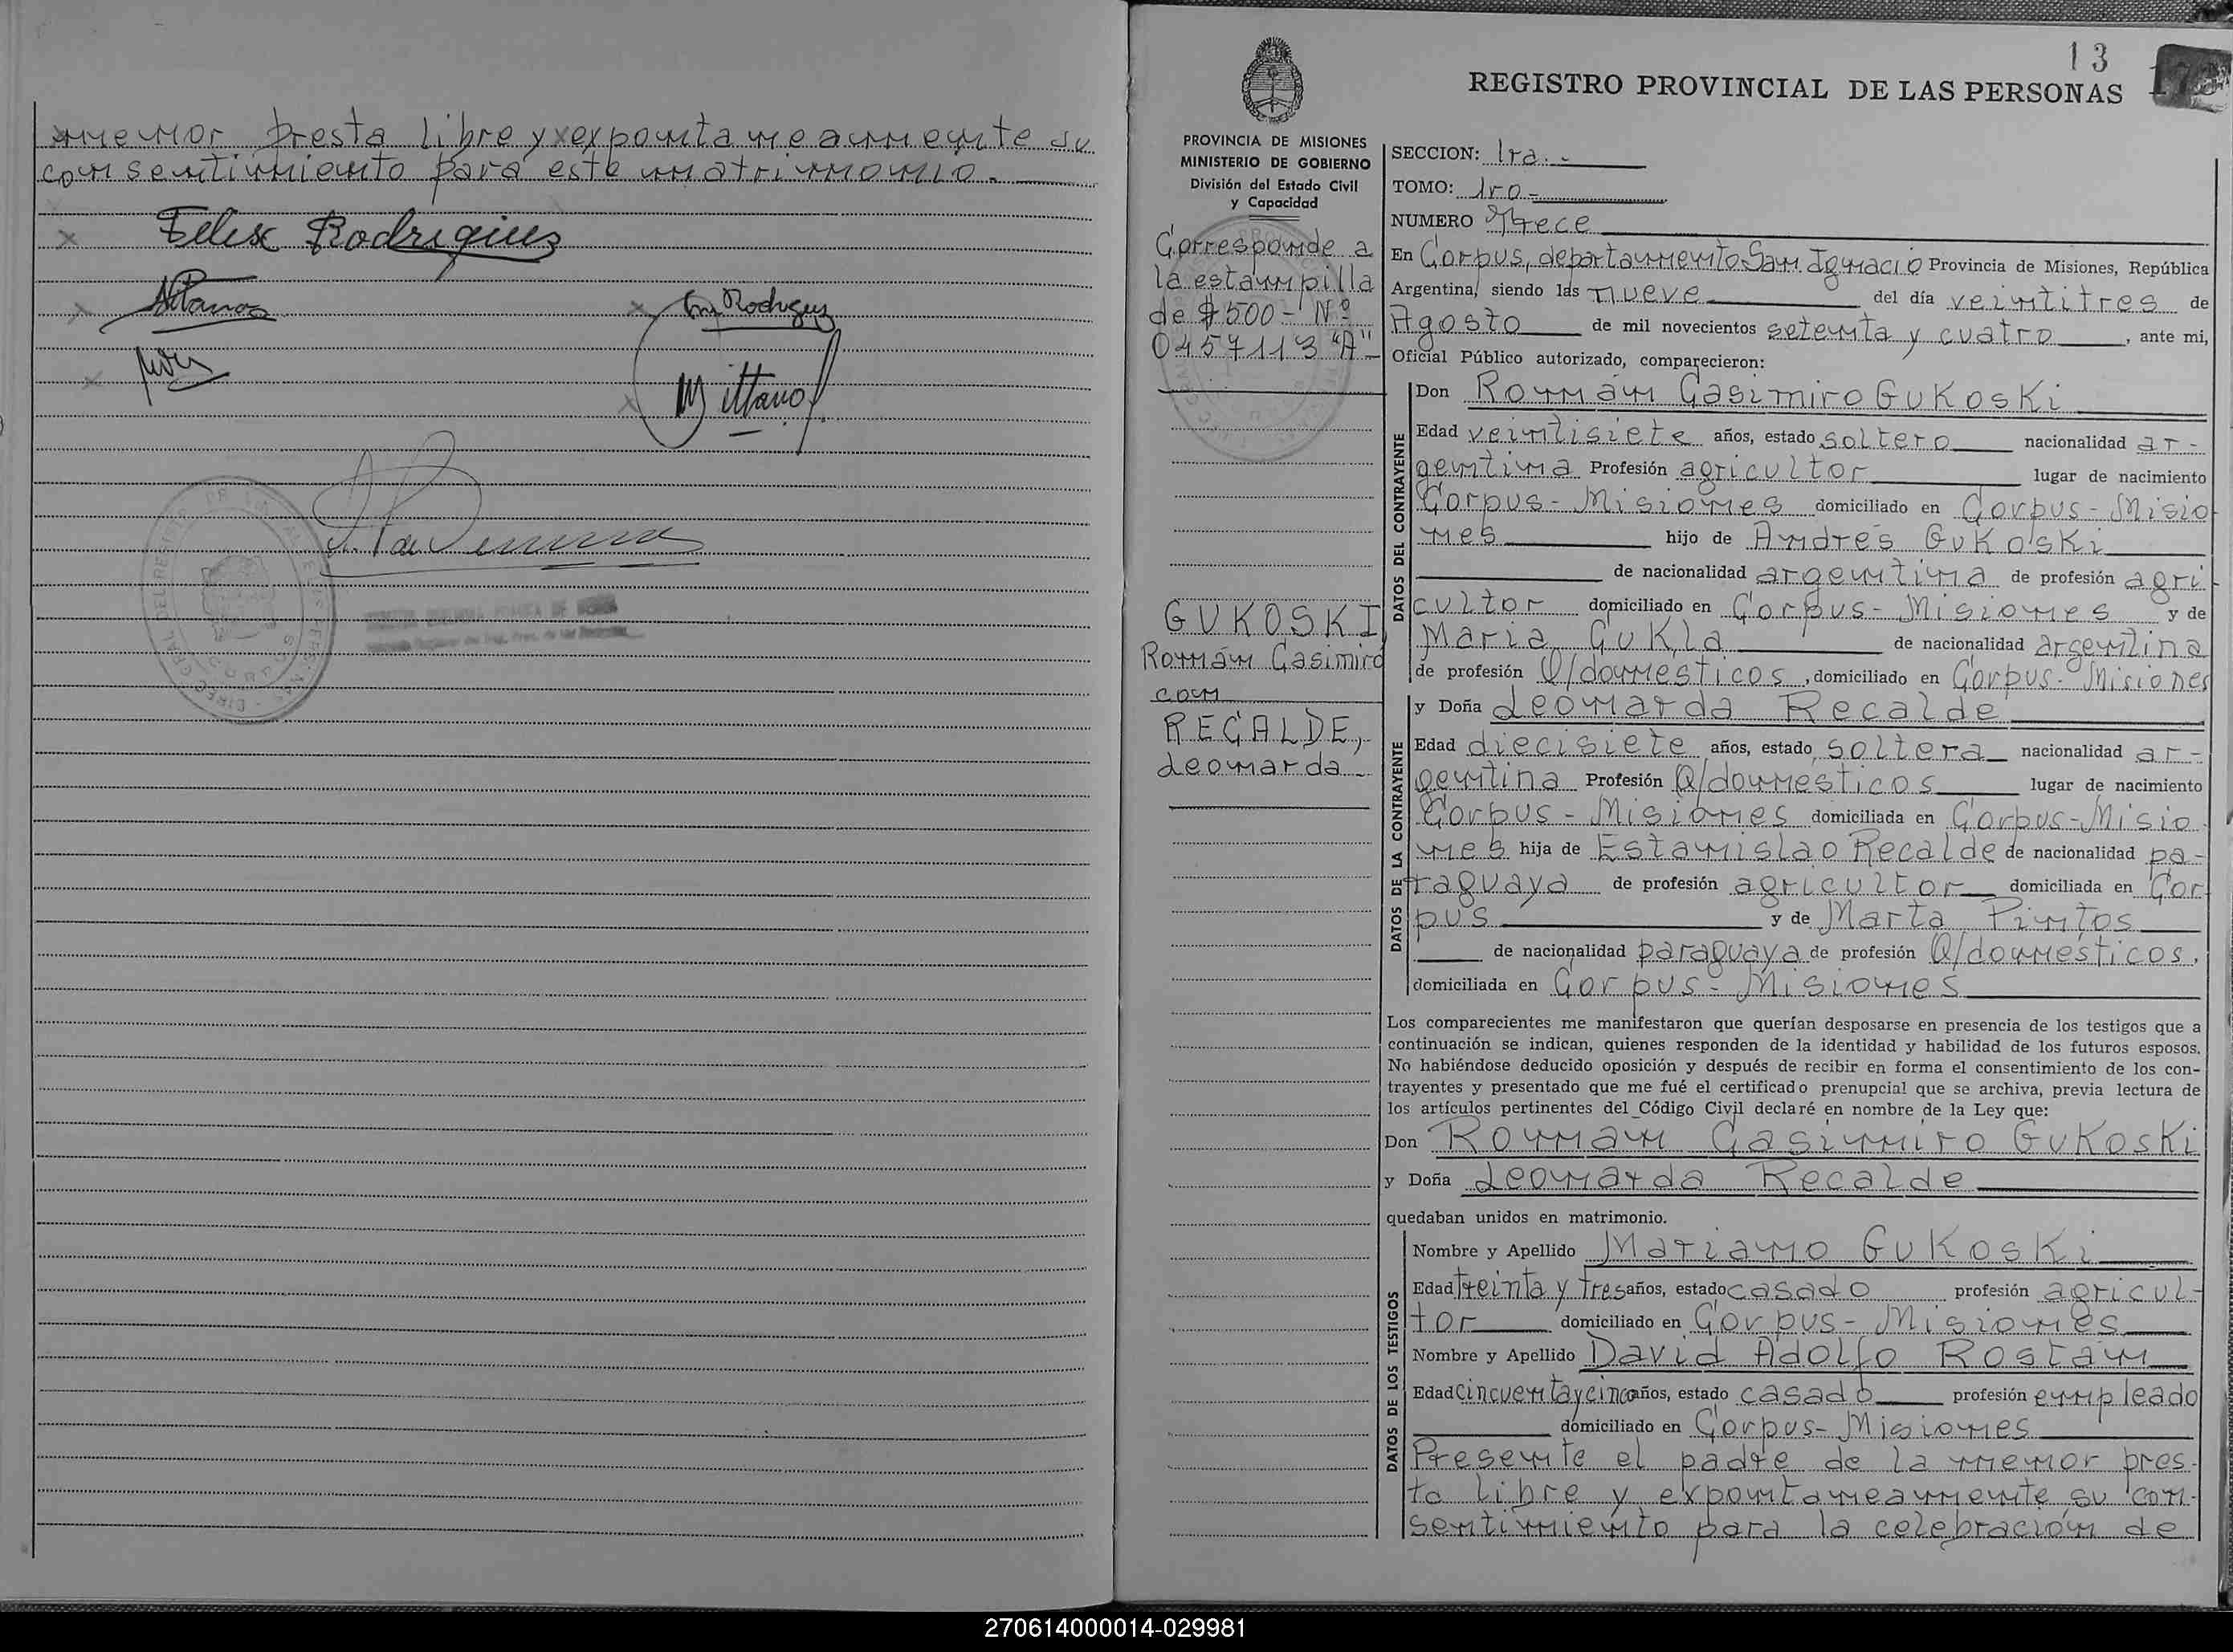 menor presta libre y expontaneamente su
consentimiento para este matrimonio.
Felix Rodrigues
13
REGISTRO PROVINCIAL DE LAS PERSONAS
PROVINCIA DE MISIONES
MINISTERIO DE GOBIERNO
División del Estado Civil
y Capacidad
Corresponde a
la estampilla
de $500- Nº
0457113 "A"
GUKOSKI
Román Casimiro
con
RECALDE,
Leonarda
SECCION: 1ra.-
TOMO: 1ro-
NUMERO Trece
En Corpus, departamento San Ignacio Provincia de Misiones, República
Argentina, siendo las nueve del día veintitres de
Agosto de mil novecientos setenta y cuatro, ante mi,
Oficial Público autorizado, comparecieron:
DATOS DEL CONTRAYENTE
Don Román Casimiro Gukoski
Edad veintisiete años, estado soltero nacionalidad ar-
gentina Profesión agricultor lugar de nacimiento
Corpus - Misiones domiciliado en Corpus - Misio
nes hijo de Andrés Gukoski
de nacionalidad argentina de profesión agri
cultor domiciliado en Corpus - Misiones y de
Maria Gukla de nacionalidad argentina
de profesión Q/domesticos, domiciliado en Corpus - Misiones
DATOS DE LA CONTRAYENTE
y Doña Leonarda Recalde
Edad diecisiete años, estado soltera nacionalidad ar-
gentina Profesión Q/domesticos lugar de nacimiento
Corpus - Misiones domiciliada en Corpus - Misio
nes hija de Estanislao Recalde de nacionalidad pa-
raguaya de profesión agricultor domiciliada en Cor
pus y de Marta Pintos
de nacionalidad paraguaya de profesión Q/domésticos,
domiciliada en Corpus - Misiones
Los comparecientes me manifestaron que querían desposarse en presencia de los testigos que a
continuación se indican, quienes responden de la identidad y habilidad de los futuros esposos.
No habiéndose deducido oposición y después de recibir en forma el consentimiento de los con-
trayentes y presentado que me fué el certificado prenupcial que se archiva, previa lectura de
los artículos pertinentes del Código Civil declaré en nombre de la Ley que:
Don Roman Casimiro Gukoski
y Doña Leonarda Recalde
quedaban unidos en matrimonio.
DATOS DE LOS TESTIGOS
Nombre y Apellido Mariano Gukoski
Edad treinta y tres años, estado casado profesión agricul-
tor domiciliado en Corpus - Misiones
Nombre y Apellido David Adolfo Rostán
Edad cincuentaycinco años, estado casado profesión empleado
domiciliado en Corpus - Misiones
Presente el padre de la menor pres-
ta libre y expontaneamente su con-
sentimiento para la celebración de
270614000014-029981